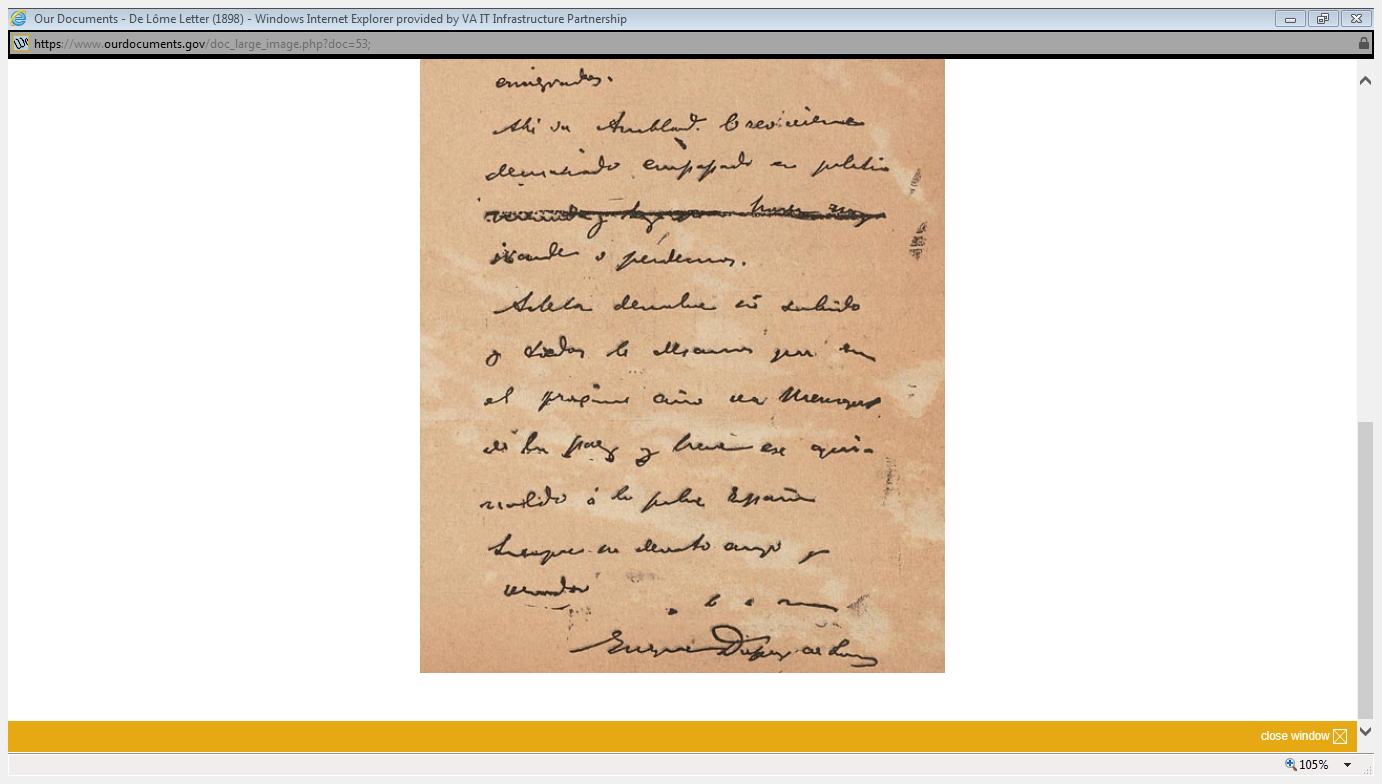 Our Documents - De Lôme Letter (1898) - Windows Internet Explorer provided by VA IT Infrastructure Partnership
https://www.ourdocuments.gov/doc_large_image.php?doc=53;
emigrados.
Ahí va Amblard. Creo viene
demasiado empapado en política
o perdemos.
Adela devuelve su saludo
y todos le deseamos que en
el próximo año sea mensajero
de la paz y lleve ese agui-
naldo á la pobre España
Siempre su devoto amigo y
servidor
Enrique Dupuy de Lome
close window
105%